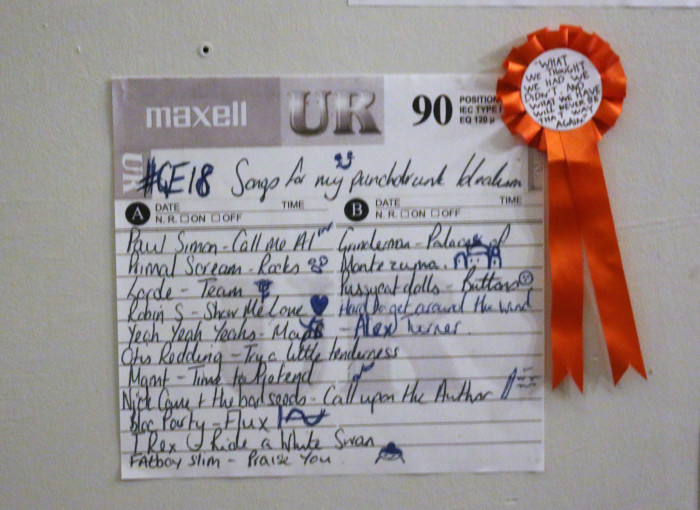 maxell UR 90 POSITION
IEC TYPE I
EQ 120 µ
UR
#GE18 Songs for my punchdrunk Idealism
A DATE TIME B DATE TIME
N.R. ☐ON ☐OFF N.R. ☐ON ☐OFF
Paul Simon - Call Me Al
Primal Scream - Rocks
Lorde - Team
Robin S - Show Me Love
Yeah Yeah Yeahs - Maps
Otis Redding - Try a little tenderness
Mgmt - Time to Pretend
Nick Cave & the bad seeds - Call upon the Author
Bloc Party - Flux
T Rex - Ride a White Swan
FAtboy Slim - Praise You
Grinderman - Palaces of
Montezuma.
Pussycat dolls - Buttons
Hard to get around the wind
- Alex Turner.
"WHAT
WE THOUGHT
WE HAD WE
DIDN'T, AND
WHAT WE HAVE
WILL NEVER BE
THAT WAY
AGAIN"